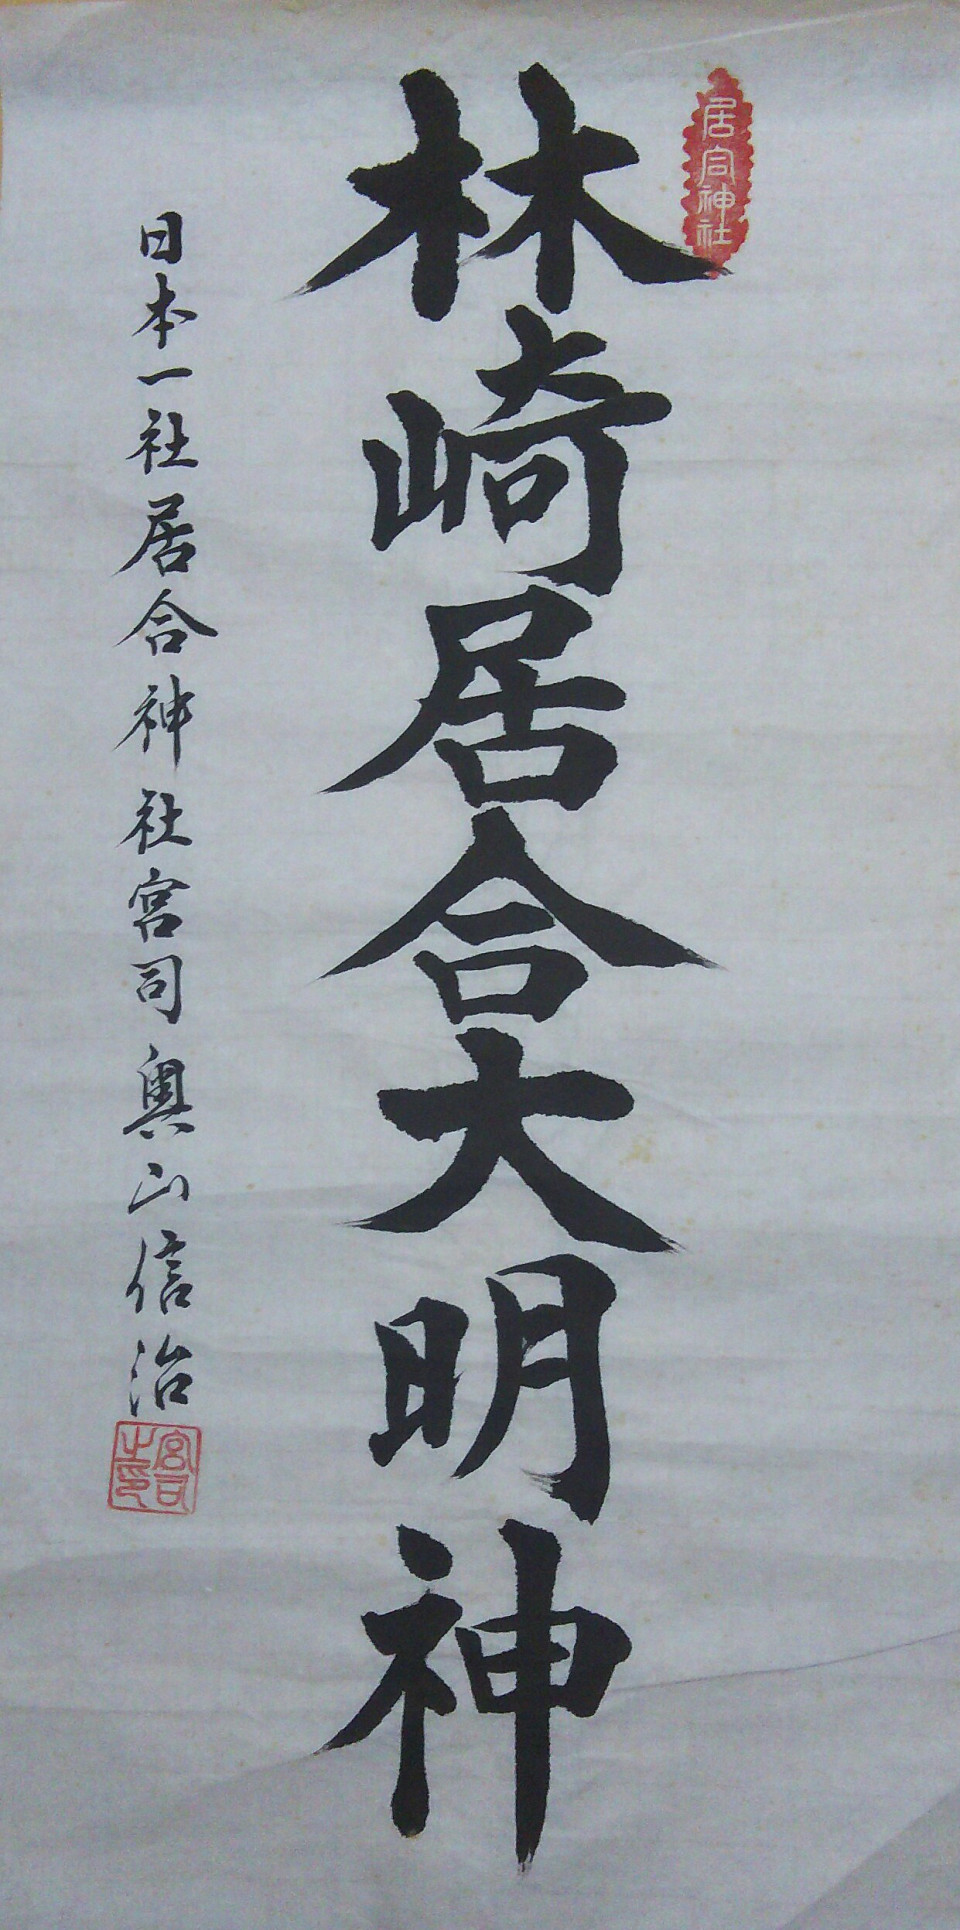 居合神社
林崎居合大明神
日本一社居合神社宮司奥山信治
宮司之印